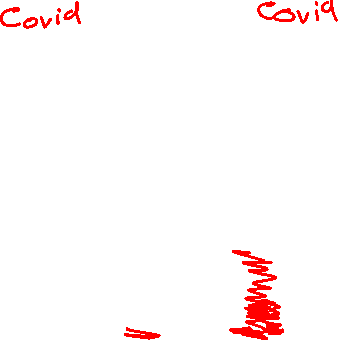 Covid Covid